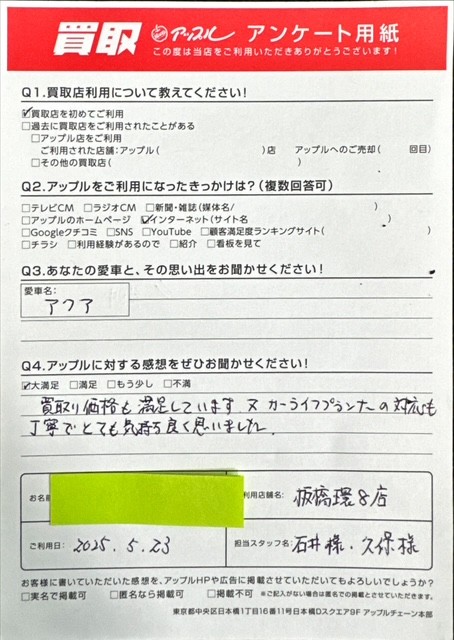 買取 アップル アンケート用紙
この度は当店をご利用いただきありがとうございます!
Q1.買取店利用について教えてください!
☑買取店を初めてご利用
□過去に買取店をご利用されたことがある
□アップル店をご利用
ご利用された店舗:アップル( )店 アップルへのご売却( 回目)
□その他の買取店( )
Q2.アップルをご利用になったきっかけは?(複数回答可)
□テレビCM □ラジオCM □新聞・雑誌(媒体名/ )
□アップルのホームページ ☑インターネット(サイト名 )
□Googleクチコミ □SNS □YouTube □顧客満足度ランキングサイト( )
□チラシ □利用経験があるので □紹介 □看板を見て
Q3.あなたの愛車と、その思い出をお聞かせください!
愛車名:
アクア
Q4.アップルに対する感想をぜひお聞かせください!
☑大満足 □満足 □もう少し □不満
買取り価格も満足しています。又カーライフプランナーの対応も
丁寧でとても気持ち良く思いました。
お名前 利用店舗名: 板橋環8店
ご利用日: 2025.5.23 担当スタッフ名: 石井様・久保様
お客様に書いていただいた感想を、アップルHPや広告に掲載させていただいてもよろしいでしょうか?
□実名で掲載可 □匿名なら掲載可 □掲載不可 ※ご記入がない場合は匿名での掲載とさせていただきます。
東京都中央区日本橋1丁目16番11号日本橋Dスクエア9F アップルチェーン本部